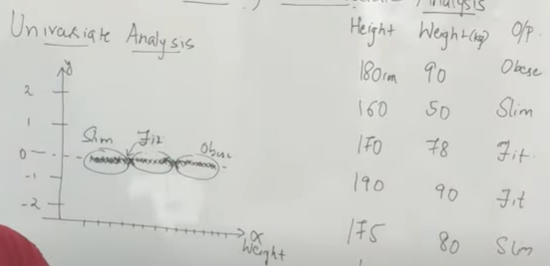 Analysis
Univariate Analysis
y
2
1
0
-1
-2
Slim Fit Obese
x
Weight
Height Weight(kg) O/P
180cm 90 Obese
160 50 Slim
170 78 Fit
190 90 Fit
175 80 Slm